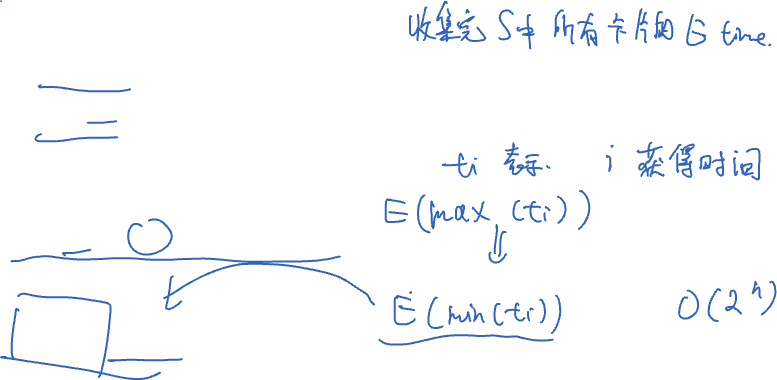 收集完 S中 所有卡片的 E time.
ti 表示. i 获得时间
E(max(ti))
⇓
E(min(ti)) O(2^n)